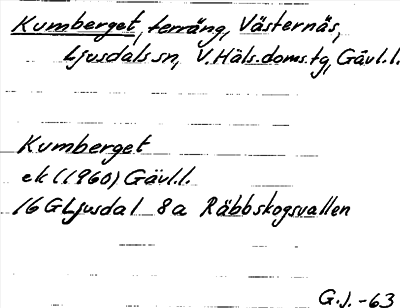 Kumberget, terräng, Västernäs,
Ljusdals sn, V. Häls. doms. tg, Gävl. l.
Kumberget
ek (1960) Gävl. l.
16 G Ljusdal 8 a Räbbskogsvallen
G. J. -63